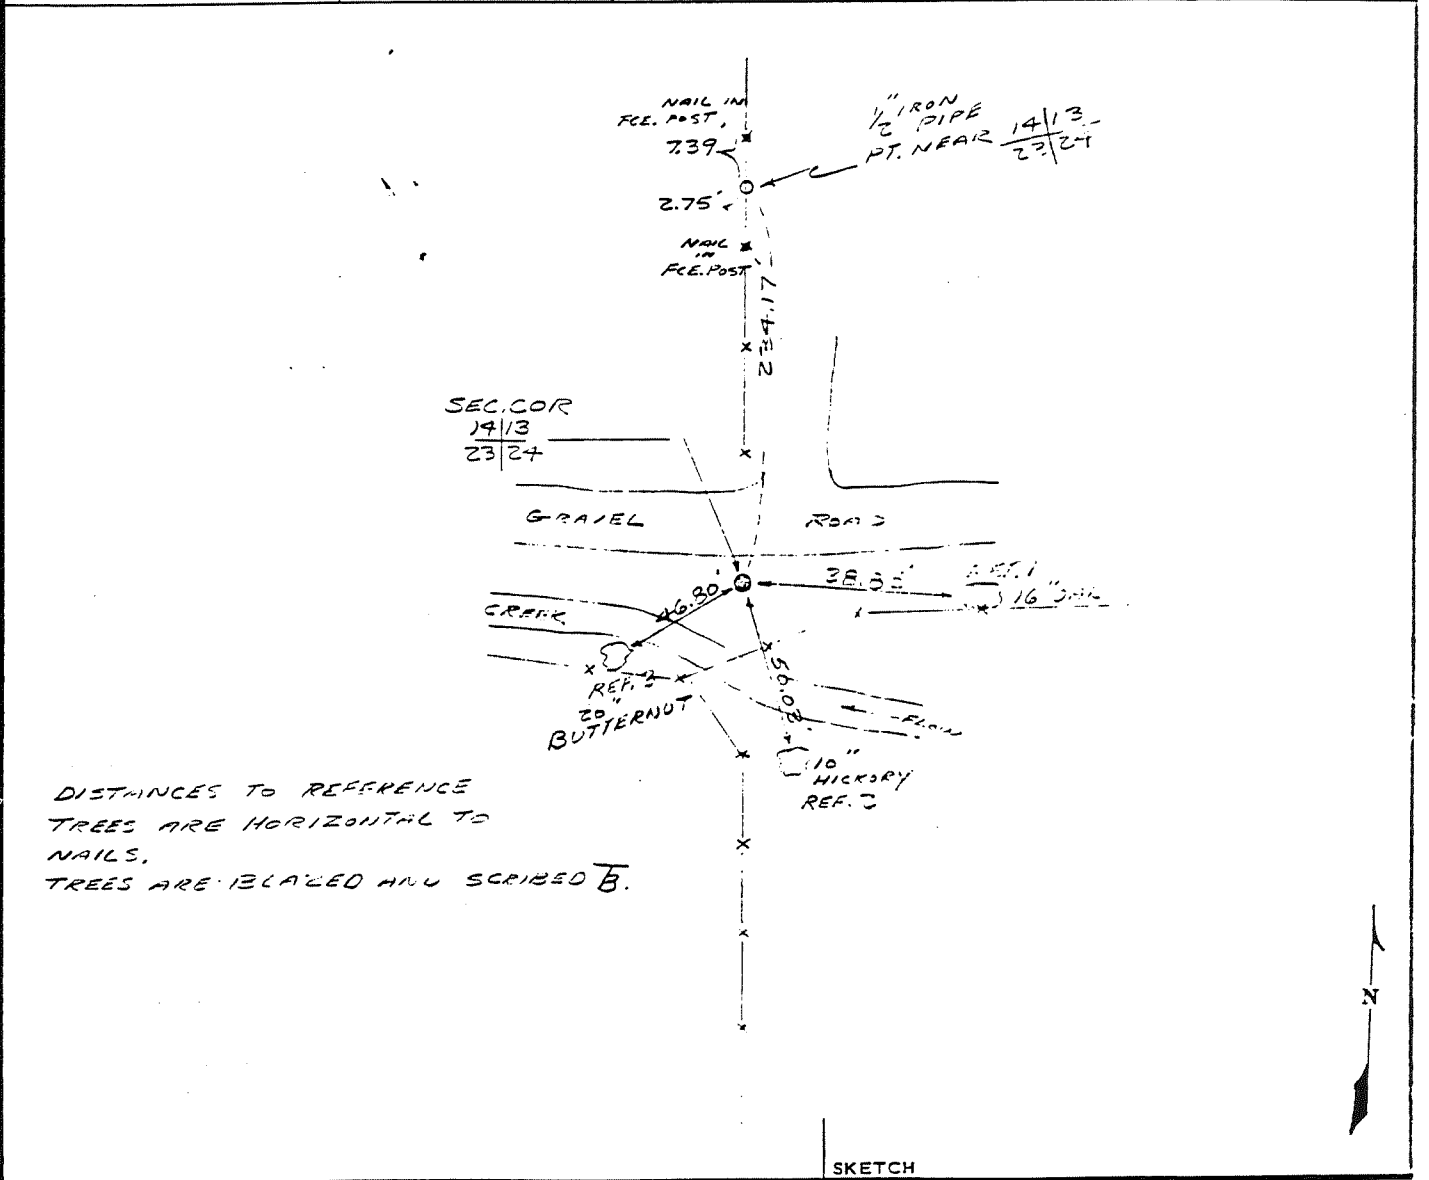 NAIL IN
FCE. POST,
7.39
1/2" IRON
PIPE
PT. NEAR 14|13
23|24
2.75'
NAIL
IN
FCE. POST
234.17'
SEC. COR
14|13
23|24
GRAVEL ROAD
46.80'
REF. 1
16" OAK
CREEK
REF. 3
20"
BUTTERNUT
56.02'
FLOW
10"
HICKORY
REF.
DISTANCES TO REFERENCE
TREES ARE HORIZONTAL TO
NAILS.
TREES ARE BLAZED AND SCRIBED B.
N
SKETCH